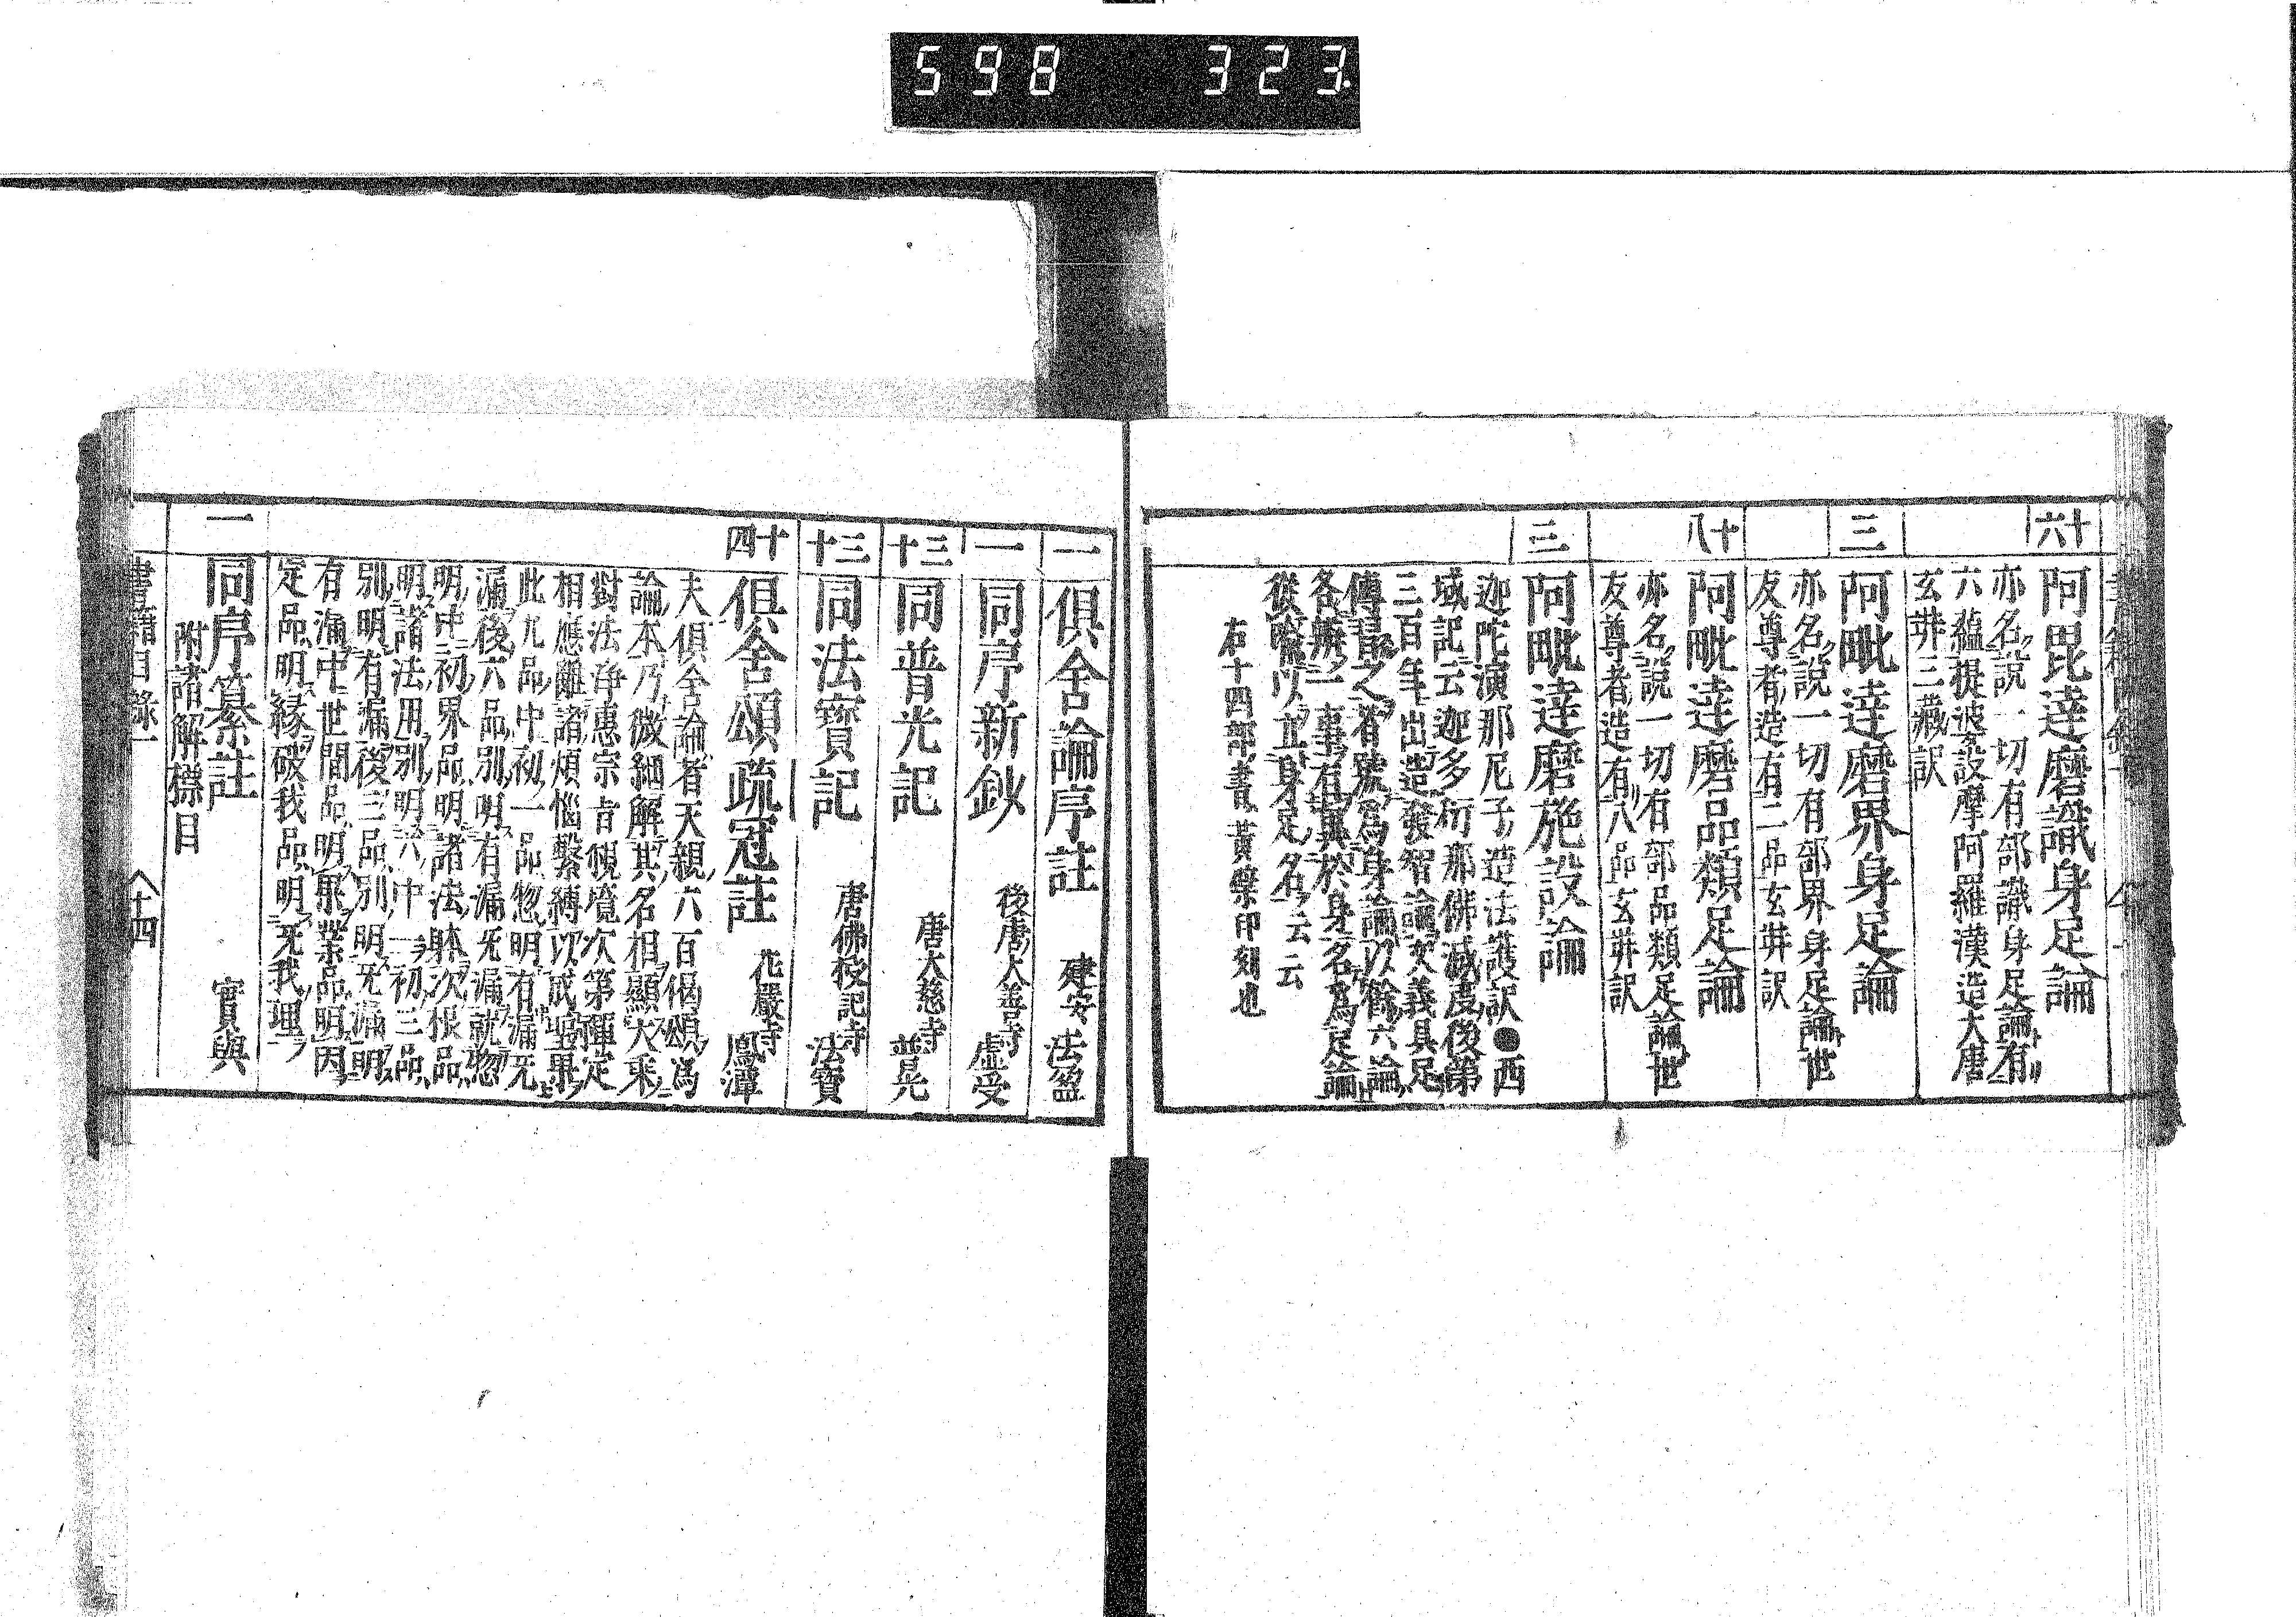 598 323.
十六
阿毘達磨識身足論
亦名說一切有部識身足論有
六蘊提婆設摩阿羅漢造大唐
玄弉三藏訳
三
阿毗達磨界身足論
亦名說一切有部界身足論世
友尊者造有二品玄弉訳
十八
阿毗達磨品類足論
亦名說一切有部品類足論世
友尊者造有八品玄弉訳
三
阿毗達磨施設論
迦陀演那尼子造法護訳●西
域記云迦多衍那佛滅度後第
三百年出造發智論次義具足
傳習之者號爲身論以餘六論
各辨一事有異於身名爲足論
從喩以立身足名云云
右十四部書黃檗印刻也
一
俱舍論序註 建安 法盈
一
同序新鈔 後唐大善寺 虛受
十三
同普光記 唐大慈寺 普光
十三
同法寶記 唐佛授記寺 法寶
十四
俱舍頌疏冠註 花嚴寺 鳳潭
夫俱舍論者天親六百偈頌爲
論本乃微細解其名相顯大乘
對法淨惠宗旨覩境次第確定
相應離諸煩惱繫縛以成聖果
此九品中初一品惣明有漏无
漏後六品別明有漏无漏就惣
明中初界品明諸法躰次根品
明諸法用別明六中初三品
別明有漏後三品別明无漏明
有漏中世間品明果業品明因
定品明緣破我品明无我理
一
同序纂註 實與
附諸解標目
書籍目錄一 十四